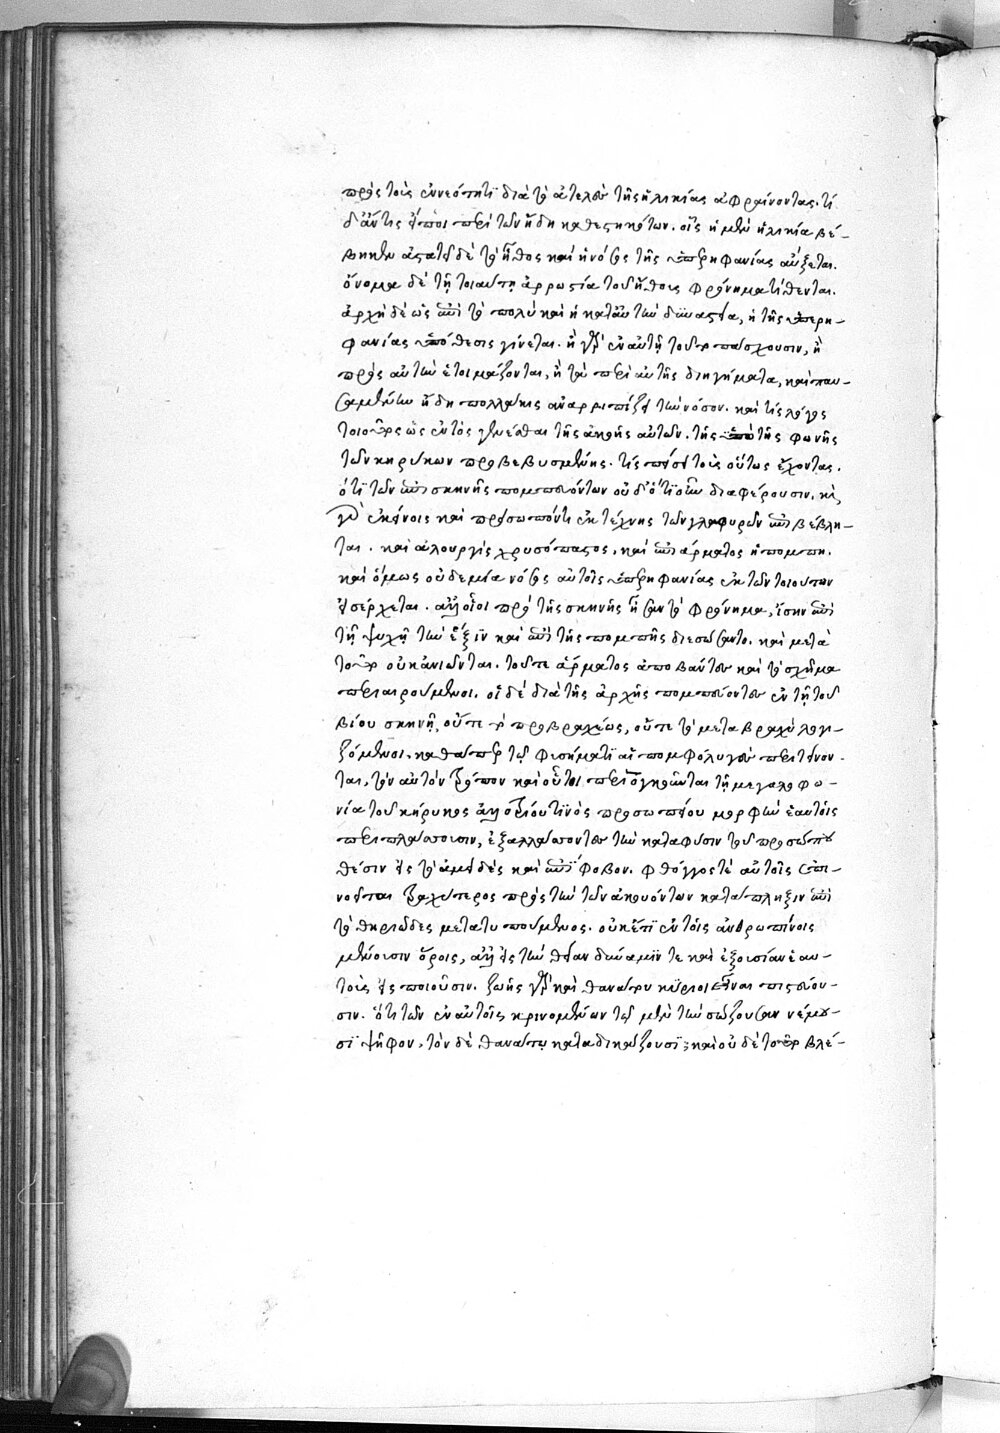 πρὸς τοὺς ἐν νεότητι διὰ τὸ ἀτελὲς τῆς ἡλικίας ἀφραίνοντας. τί
δ' ἄν τις εἴποι περὶ τῶν ἤδη καθεστηκότων. οἷς ἡ μὲν ἡλικία βέ-
βηκεν ἀστατεῖ δὲ τὸ ἦθος καὶ ἡ νόσος τῆς ὑπερηφανίας αὔξεται.
ὄνομα δὲ τῇ τοιαύτῃ ἀρρωστία τοῦ ἤθους φρόνημα τίθενται.
ἀρχὴ δὲ ὡς ἐπὶ τὸ πολὺ καὶ ἡ κατ' αὐτὴν δυναστεία, ἡ τῆς ὑπερη-
φανίας ὑπόθεσις γίνεται. ἢ γὰρ ἐν αὐτῇ τοῦτο πάσχουσιν, ἢ
πρὸς αὐτὴν ἑτοιμάζονται, ἢ τὰ περὶ αὐτῆς διηγήματα, καὶ παυ-
σαμένην ἤδη πολλάκις ἀναρριπίζει τὴν νόσον. καὶ τίς λόγος
τοιοῦτος ὡς ἐντὸς γενέσθαι τῆς ἀκοῆς αὐτῶν. τῆς ὑπὸ τῆς φωνῆς
τῶν κηρύκων προβεβυσμένης. τίς πείσει τοὺς οὕτως ἔχοντας.
ὅτι τῶν ἐπὶ σκηνῆς πομπευόντων οὐδ' ὁτιοῦν διαφέρουσιν. καὶ
γὰρ ἐκείνοις καὶ πρόσωπόν τι ἐκ τέχνης τῶν γλαφυρῶν ἐπιβέβλη-
ται. καὶ ἁλουργὶς χρυσόπαστος, καὶ ἐπὶ ἅρματος ἡ πομπή.
καὶ ὅμως οὐδεμία νόσος αὐτοῖς ὑπερηφανίας ἐκ τῶν τοιούτων
εἰσέρχεται. ἀλλ' οἷοι πρὸ τῆς σκηνῆς ἦσαν τὸ φρόνημα, ἴσην ἐπὶ
τῇ ψυχῇ τὴν ἕξιν καὶ ἐπὶ τῆς πομπῆς διεσώσαντο. καὶ μετὰ
τοῦτο οὐκ ἀνιῶνται. τοῦ τε ἅρματος ἀποβάντες καὶ τὸ σχῆμα
περιαιρούμενοι. οἱ δὲ διὰ τῆς ἀρχῆς πομπεύοντες ἐν τῇ τοῦ
βίου σκηνῇ, οὔτε τὸ πρὸ βραχέως, οὔτε τὸ μετὰ βραχὺ λογι-
ζόμενοι. καθάπερ τῷ φυσήματι αἱ πομφόλυγες περιτείνον-
ται, τὸν αὐτὸν τρόπον καὶ οὗτοι περιογκοῦνται τῇ μεγαλοφω-
νία τοῦ κήρυκος ἀλλοτρίου τινὸς προσωπείου μορφὴν ἑαυτοῖς
περιπλάττουσιν, ἐξαλλάττοντες τὴν κατὰ φύσιν τοῦ προσώπου
θέσιν εἰς τὸ ἀμειδὲς καὶ ἐπίφοβον. φθόγγος τε αὐτοῖς ἐπι-
νοεῖται τραχύτερος πρὸς τὴν τῶν ἀκουόντων κατάπληξιν ἐπὶ
τὸ θηριῶδες μετατυπούμενος. οὐκέτι ἐν τοῖς ἀνθρωπίνοις
μένουσιν ὅροις, ἀλλ' εἰς τὴν θείαν δύναμίν τε καὶ ἐξουσίαν ἑαυ-
τοὺς εἰσποιοῦσιν. ζωῆς γὰρ καὶ θανάτου κύριοι εἶναι πιστεύου-
σιν. ὅτι τῶν ἐν αὐτοῖς κρινομένων τῷ μὲν τὴν σώζουσαν νέμου-
σι ψῆφον, τὸν δὲ θανάτῳ καταδικάζουσι. καὶ οὐδὲ τοῦτο βλέ-